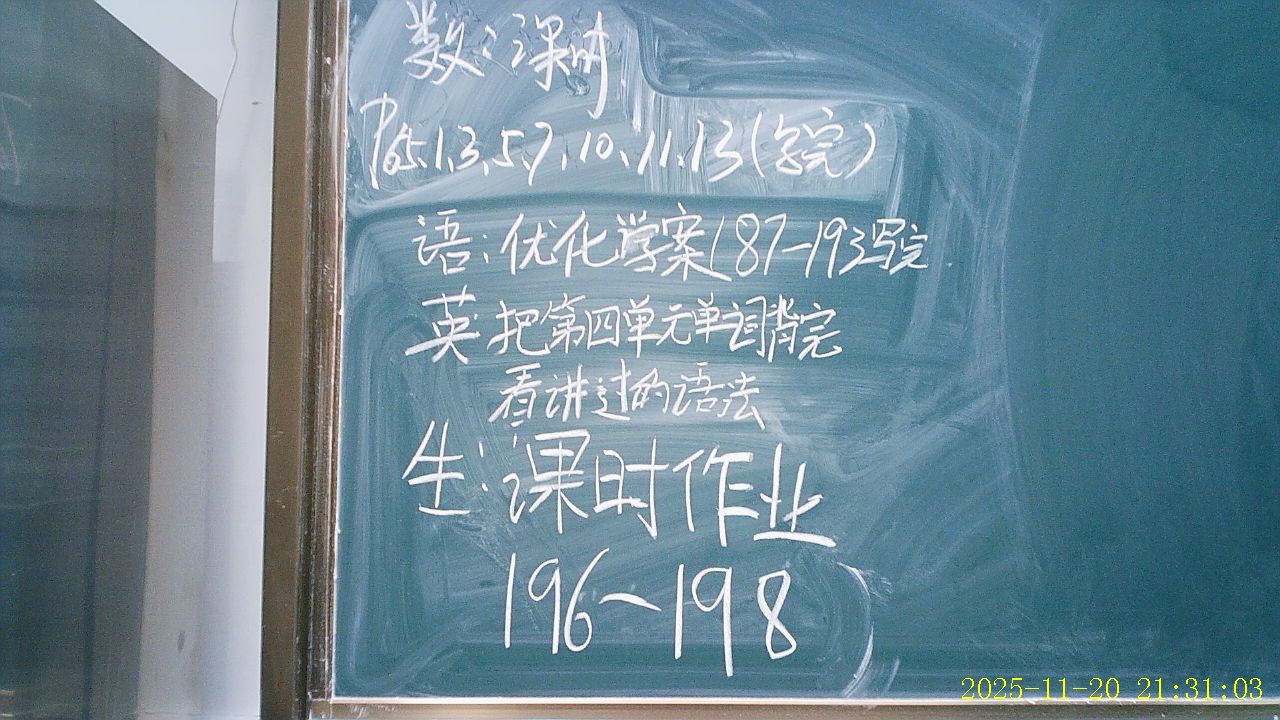 数:课时
P65、1、3、5、7、10、11、13(字完)
语:优化学案187-193写完
英 把第四单元单词背完
看讲过的语法
生:课时作业
196~198
2025-11-20 21:31:03